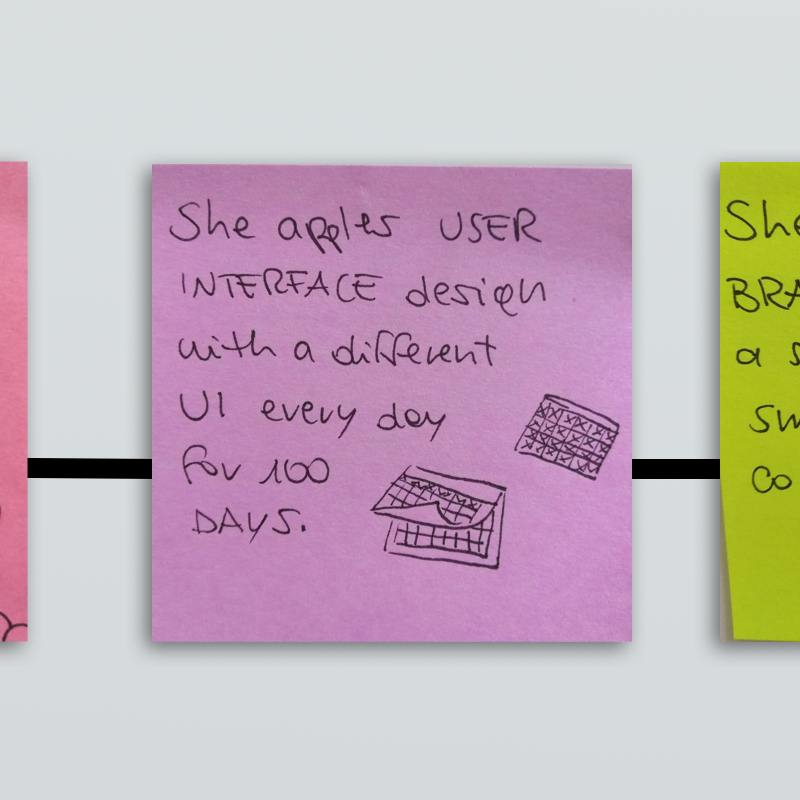 She apples USER
INTERFACE design
with a different
UI every day
for 100
DAYS.
She
BRA
a s
sw
co